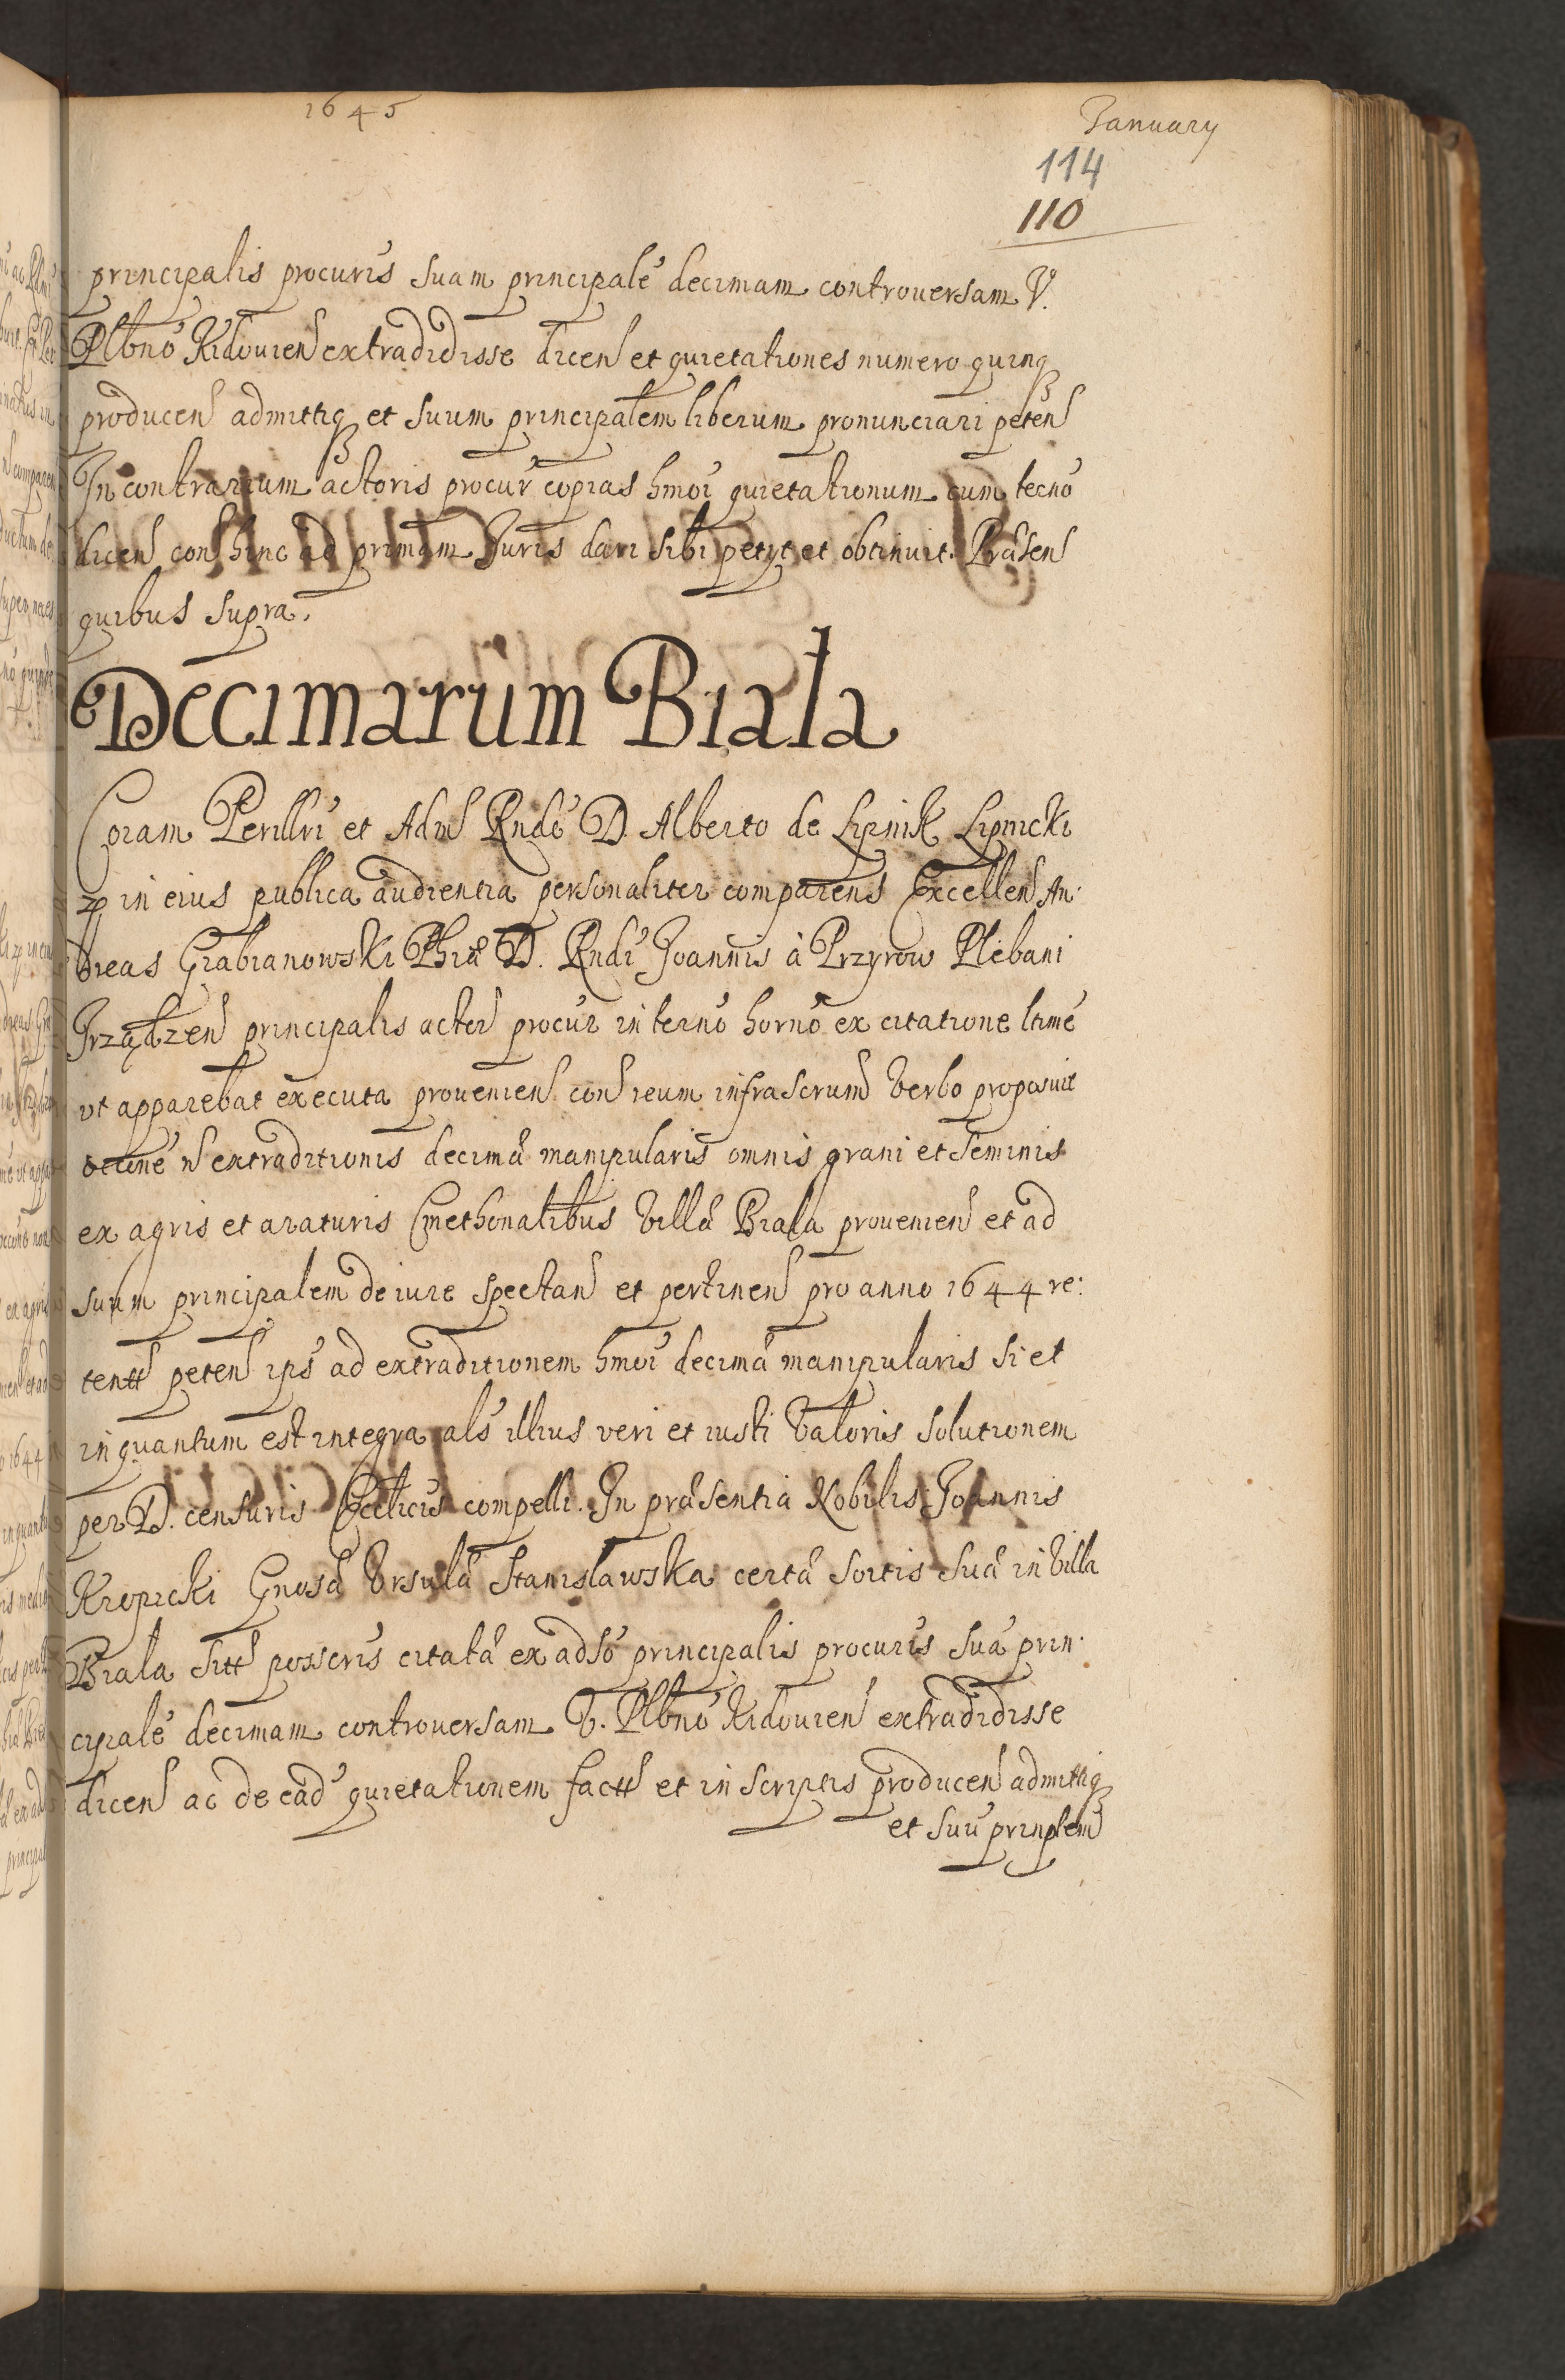 1645
January
114
110
principalis procuris suam principalé decimam controversam V.
Plbnó Kidoviens extradidisse dicens et quietationes numero quinq
producens admittiq et suum principalem liberum pronunciari petens
In contrarium actoris procur copias hmoi quietationum cum tecnó
dicens cons hinc ad primam Juris dari sibi petyt et obtinuit. Præsens
quibus supra.
Decimarum Biała
Coram Perillri et Adm Rndo D Alberto de Lipnik Lipnicki
in eius publica audientia personaliter comparens Excellens An:
dreas Grabianowski Phiæ D. Rndi Joannis à Przyrow Plebani
Irządzens principalis actor procur in ternó hornó ex citatione ltimé
ut apparebat executa proveniens cons reum infrascrum verbo proposuit
octiné ns extraditionis decimæ manipularis omnis grani et seminis
ex agris et araturis Cmethonalibus villæ Biała proveniens et ad
suum principalem de iure spectans et pertinens pro anno 1644 re:
tentt petens ips ad extraditionem hmoi decimæ manipularis si et
inquantum est integra als illius veri et iusti valoris solutionem
per D. censuris Ecclicis compelli. In præsentia Nobilis Joannis
Kropicki Gnosæ Ursulæ Stanisławska certæ sortis suæ in villa
Biała sitt possoris citatæ ex adso principalis procuris suá prin:
cipalé decimam controversam V. Plbnó Kidoviens extradidisse
dicens ac de ead quietationem factt et in scriptis producens admittiq
et suú prinplem